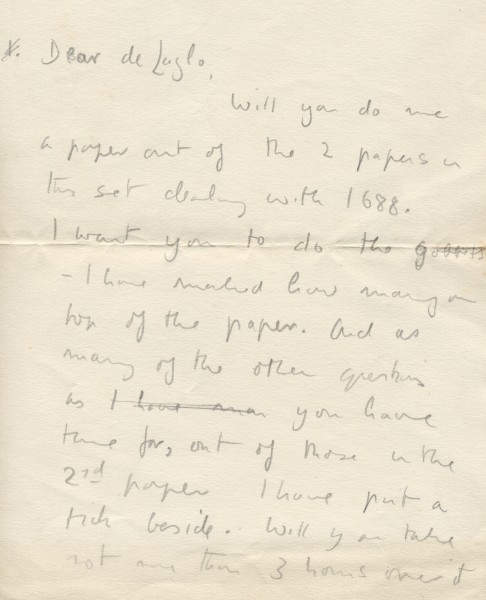 X. Dear de Laszlo,
Will you do me
a paper out of the 2 papers in
this set dealing with 1688.
I want you to do the gobbets
- I have marked how many on
top of the paper. And as
many of the other questions
as I have man you have
time for, out of those in the
2nd paper I have put a
tick beside. Will you take
not more than 3 hours over it